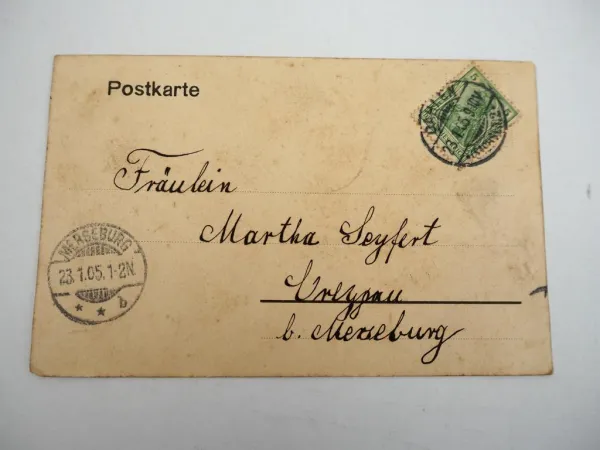 Postkarte
Fräulein
Martha Seyfert
Creypau
b. Merseburg
MERSEBURG
23.1.05.1-2N.
* * b